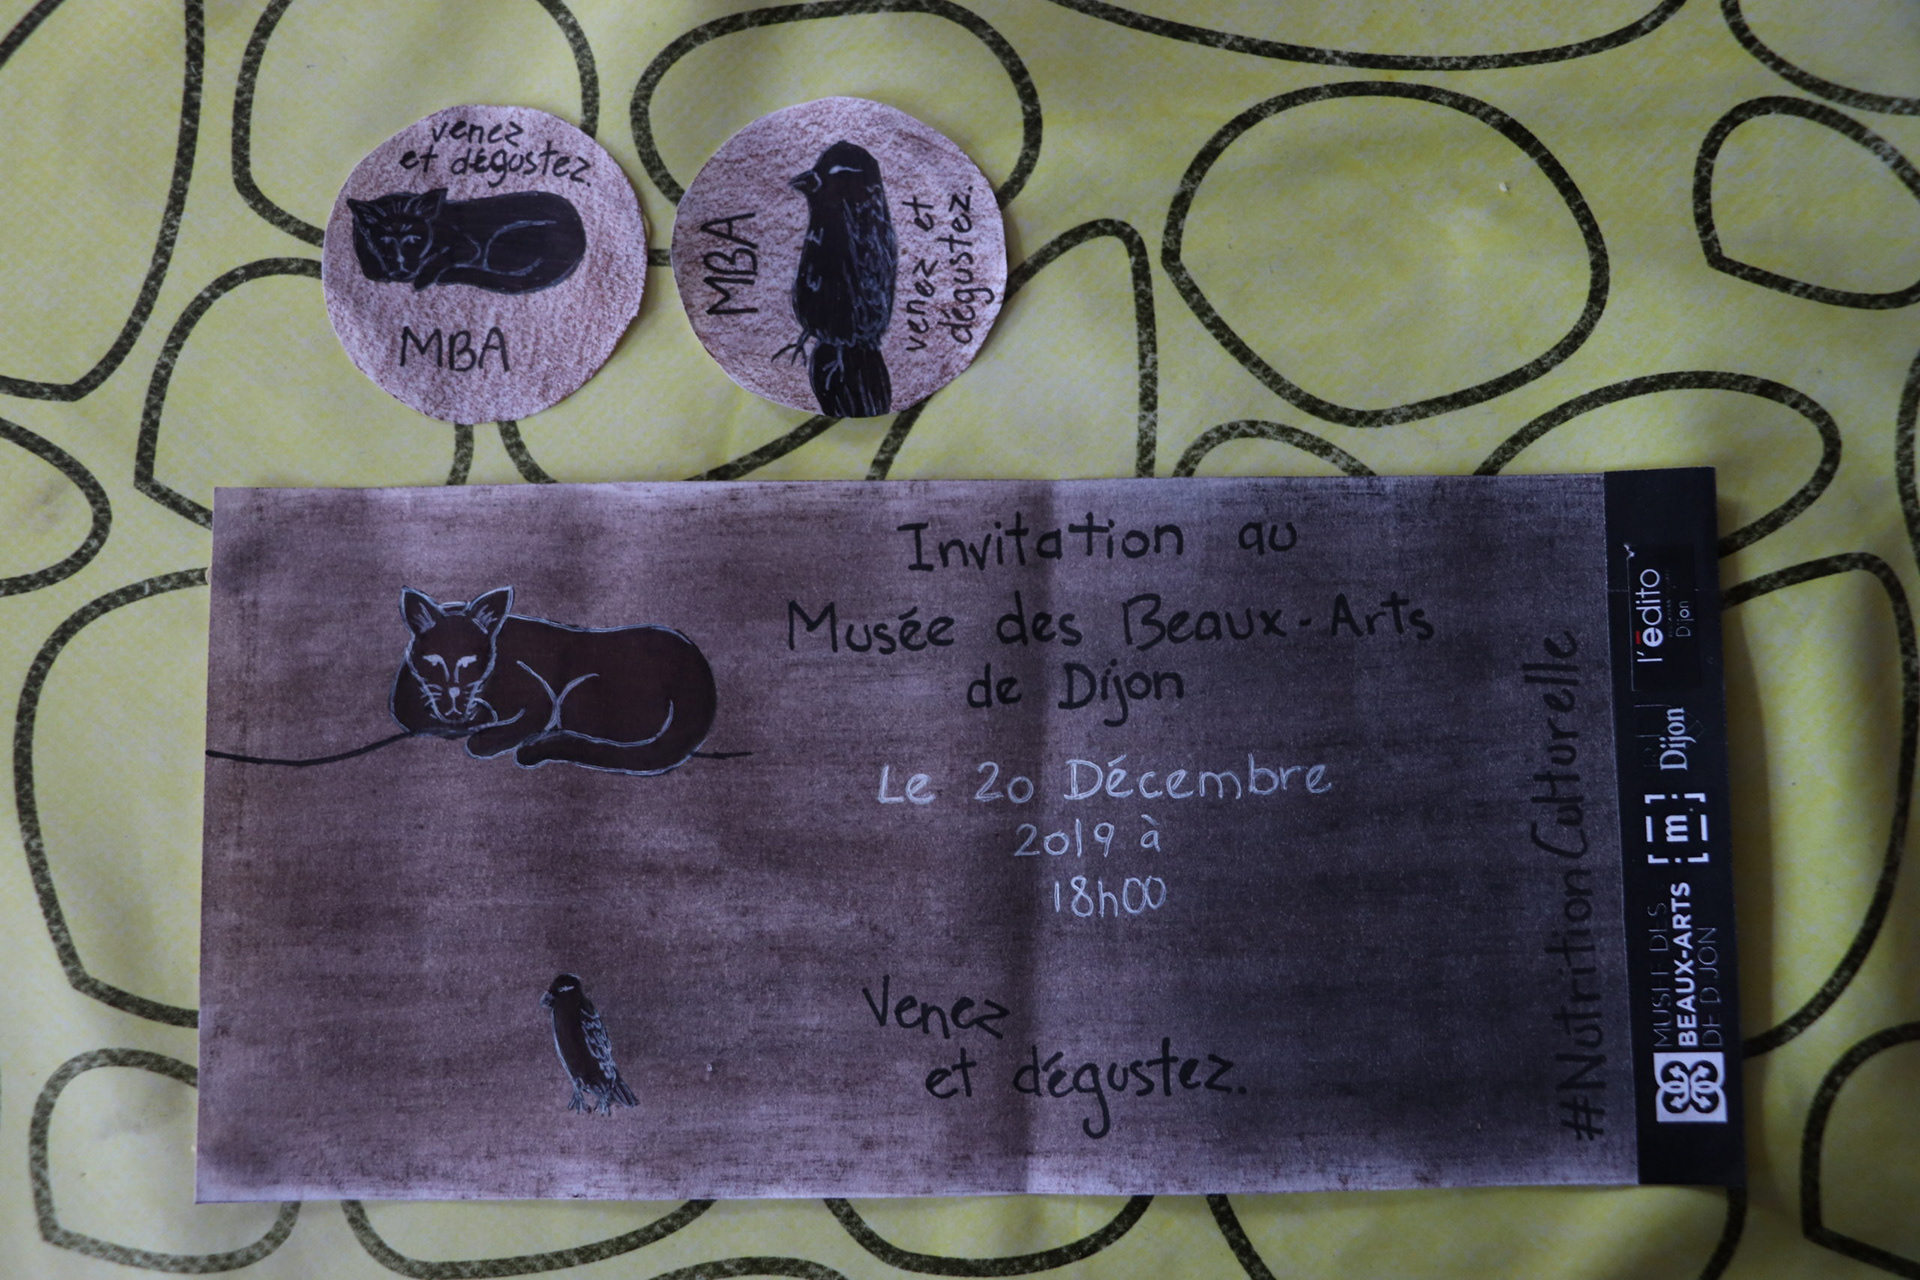 venez
et dégustez.
MBA
MBA
venez et
dégustez.
Invitation au
Musée des Beaux-Arts
de Dijon
Le 20 Décembre
2019 à
18h00
Venez
et dégustez.
#NutritionCulturelle
MUSÉE DES
BEAUX-ARTS
DE DIJON
[m]
Dijon
l'édito
Dijon